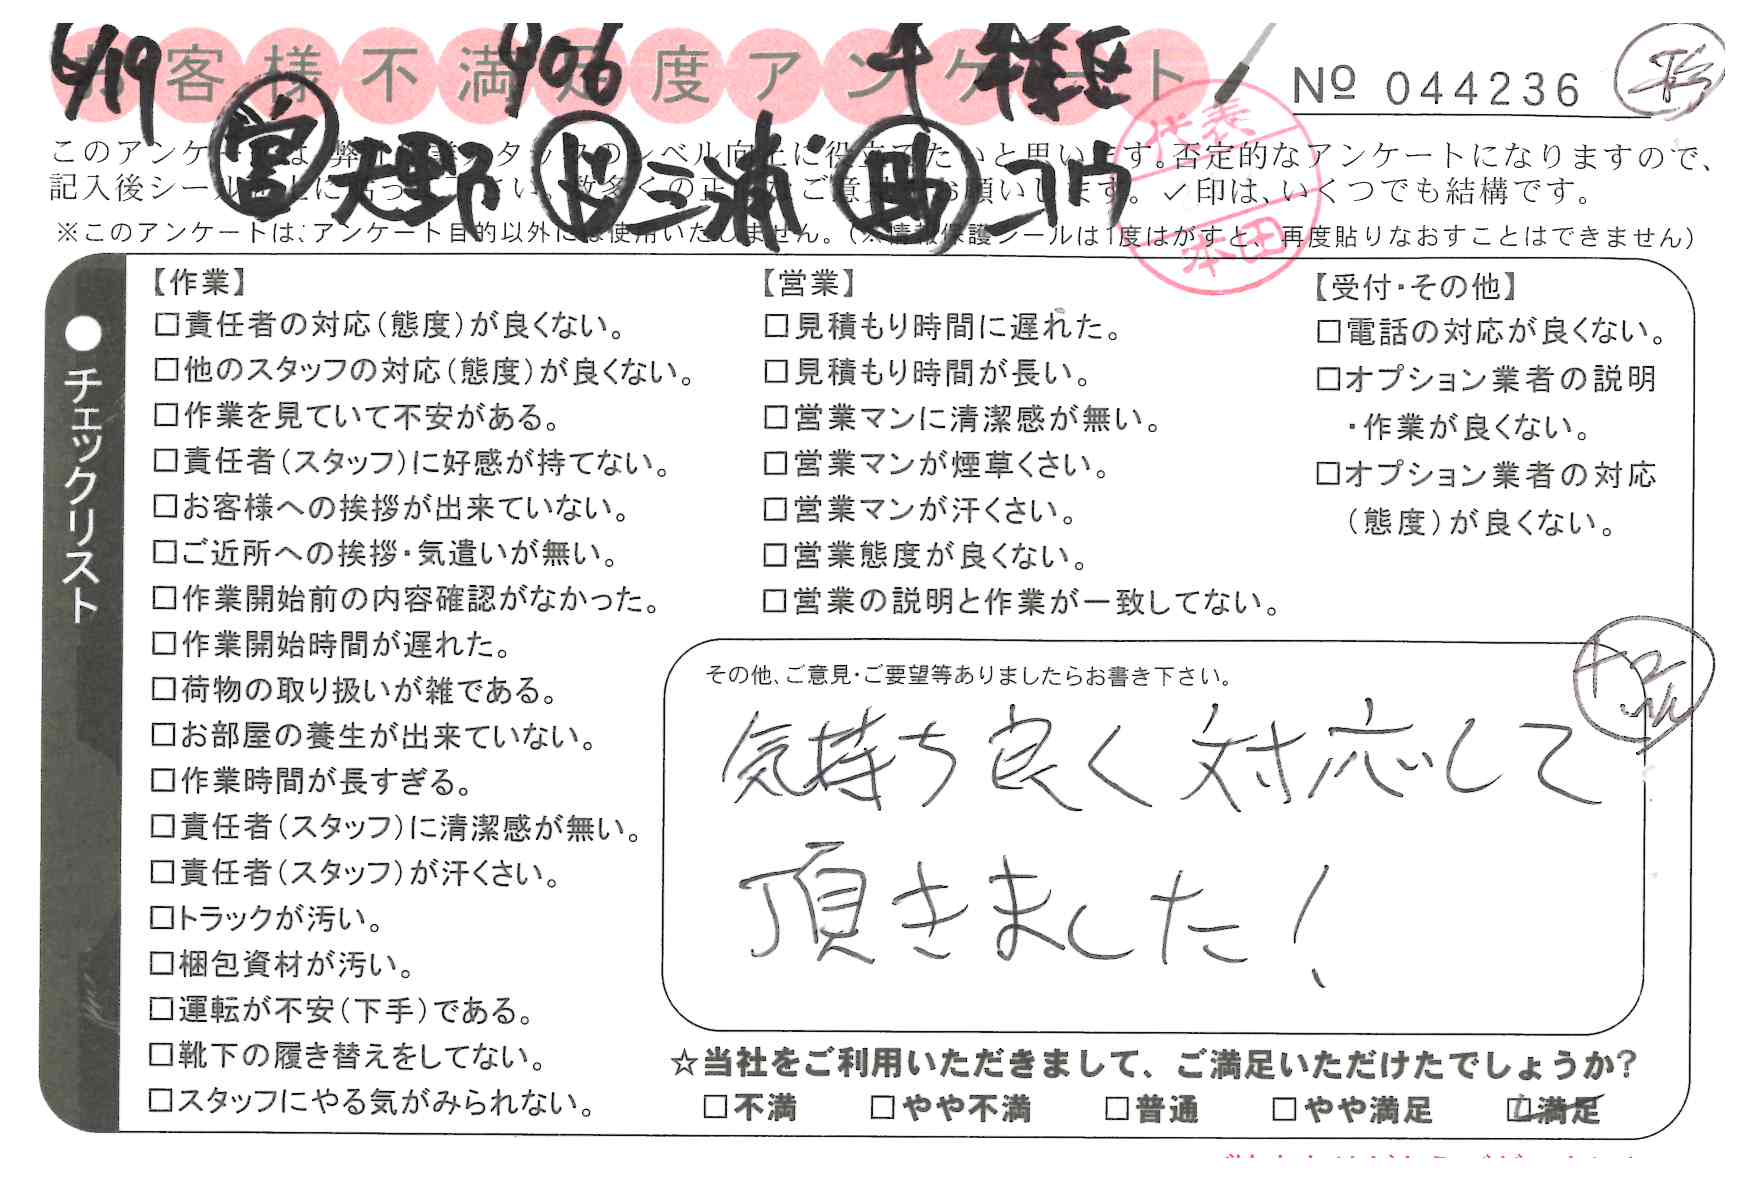 6/19 906 千種区
お客様不満足度アンケート
№ 044236
営 天野 ド 三浦 助 コウ
代表 本田
このアンケートは、弊社営業スタッフのレベル向上に役立てたいと思います。否定的なアンケートになりますので、
記入後シールを上に貼って下さい。数多くの正直なご意見をお願いします。✓印は、いくつでも結構です。
※このアンケートは、アンケート目的以外には使用いたしません。(※情報保護シールは1度はがすと、再度貼りなおすことはできません)
●チェックリスト
【作業】
□責任者の対応(態度)が良くない。
□他のスタッフの対応(態度)が良くない。
□作業を見ていて不安がある。
□責任者(スタッフ)に好感が持てない。
□お客様への挨拶が出来ていない。
□ご近所への挨拶・気遣いが無い。
□作業開始前の内容確認がなかった。
□作業開始時間が遅れた。
□荷物の取り扱いが雑である。
□お部屋の養生が出来ていない。
□作業時間が長すぎる。
□責任者(スタッフ)に清潔感が無い。
□責任者(スタッフ)が汗くさい。
□トラックが汚い。
□梱包資材が汚い。
□運転が不安(下手)である。
□靴下の履き替えをしてない。
□スタッフにやる気がみられない。
【営業】
□見積もり時間に遅れた。
□見積もり時間が長い。
□営業マンに清潔感が無い。
□営業マンが煙草くさい。
□営業マンが汗くさい。
□営業態度が良くない。
□営業の説明と作業が一致してない。
【受付・その他】
□電話の対応が良くない。
□オプション業者の説明
・作業が良くない。
□オプション業者の対応
(態度)が良くない。
その他、ご意見・ご要望等ありましたらお書き下さい。
気持ち良く対応して
頂きました！
☆当社をご利用いただきまして、ご満足いただけたでしょうか?
□不満 □やや不満 □普通 □やや満足 □満足